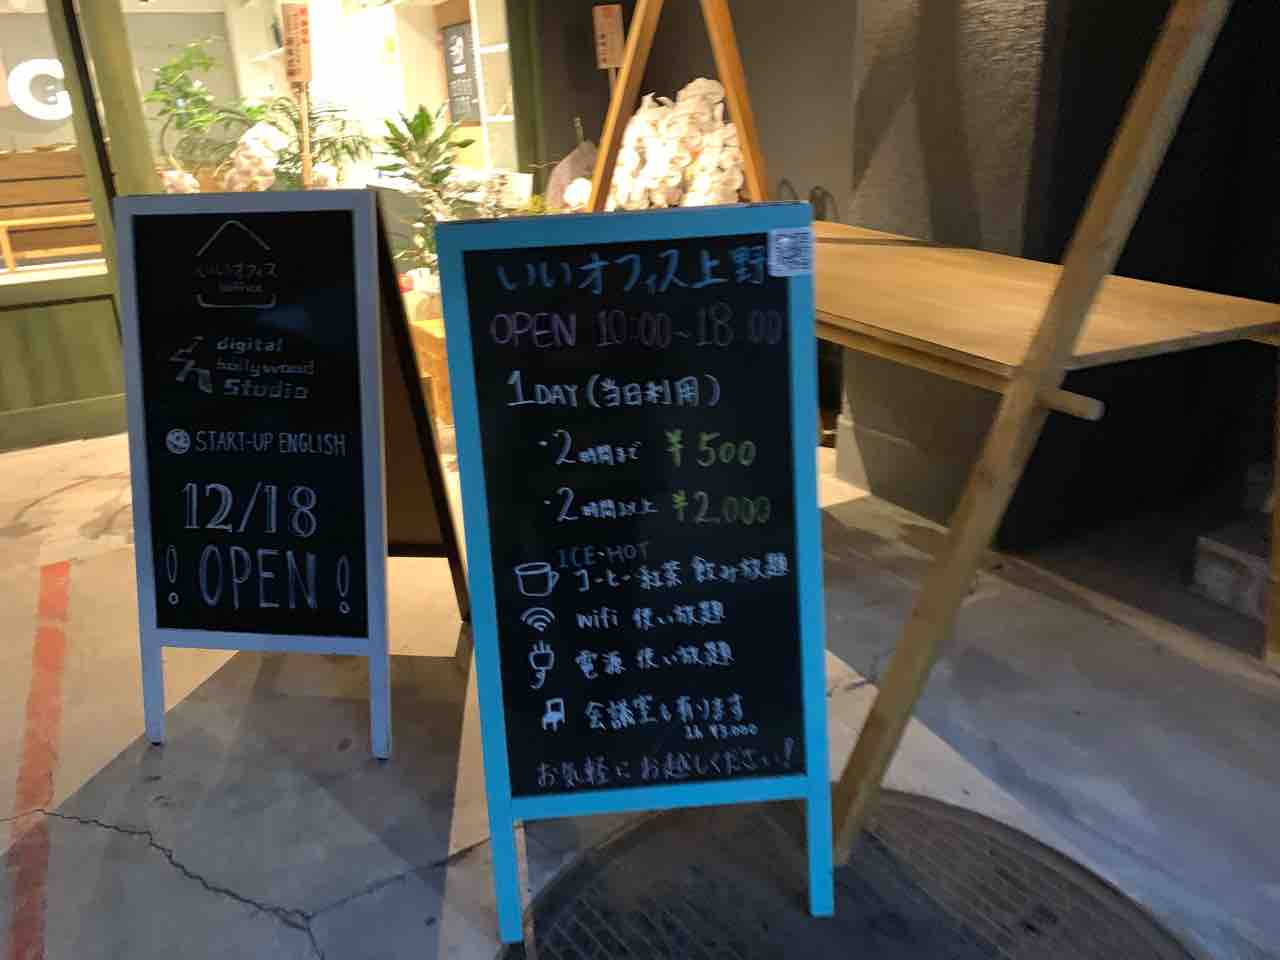 いいオフィス
digital
hollywood
Studio
START-UP ENGLISH
12/18
! OPEN !
いいオフィス上野
OPEN 10:00~18:00
1DAY(当日利用)
・2時間まで ¥500
・2時間以上 ¥2,000
ICE・HOT
コーヒー 紅茶 飲み放題
wifi 使い放題
電源 使い放題
会議室も有ります
1h ¥3,000
お気軽にお越しください!
G